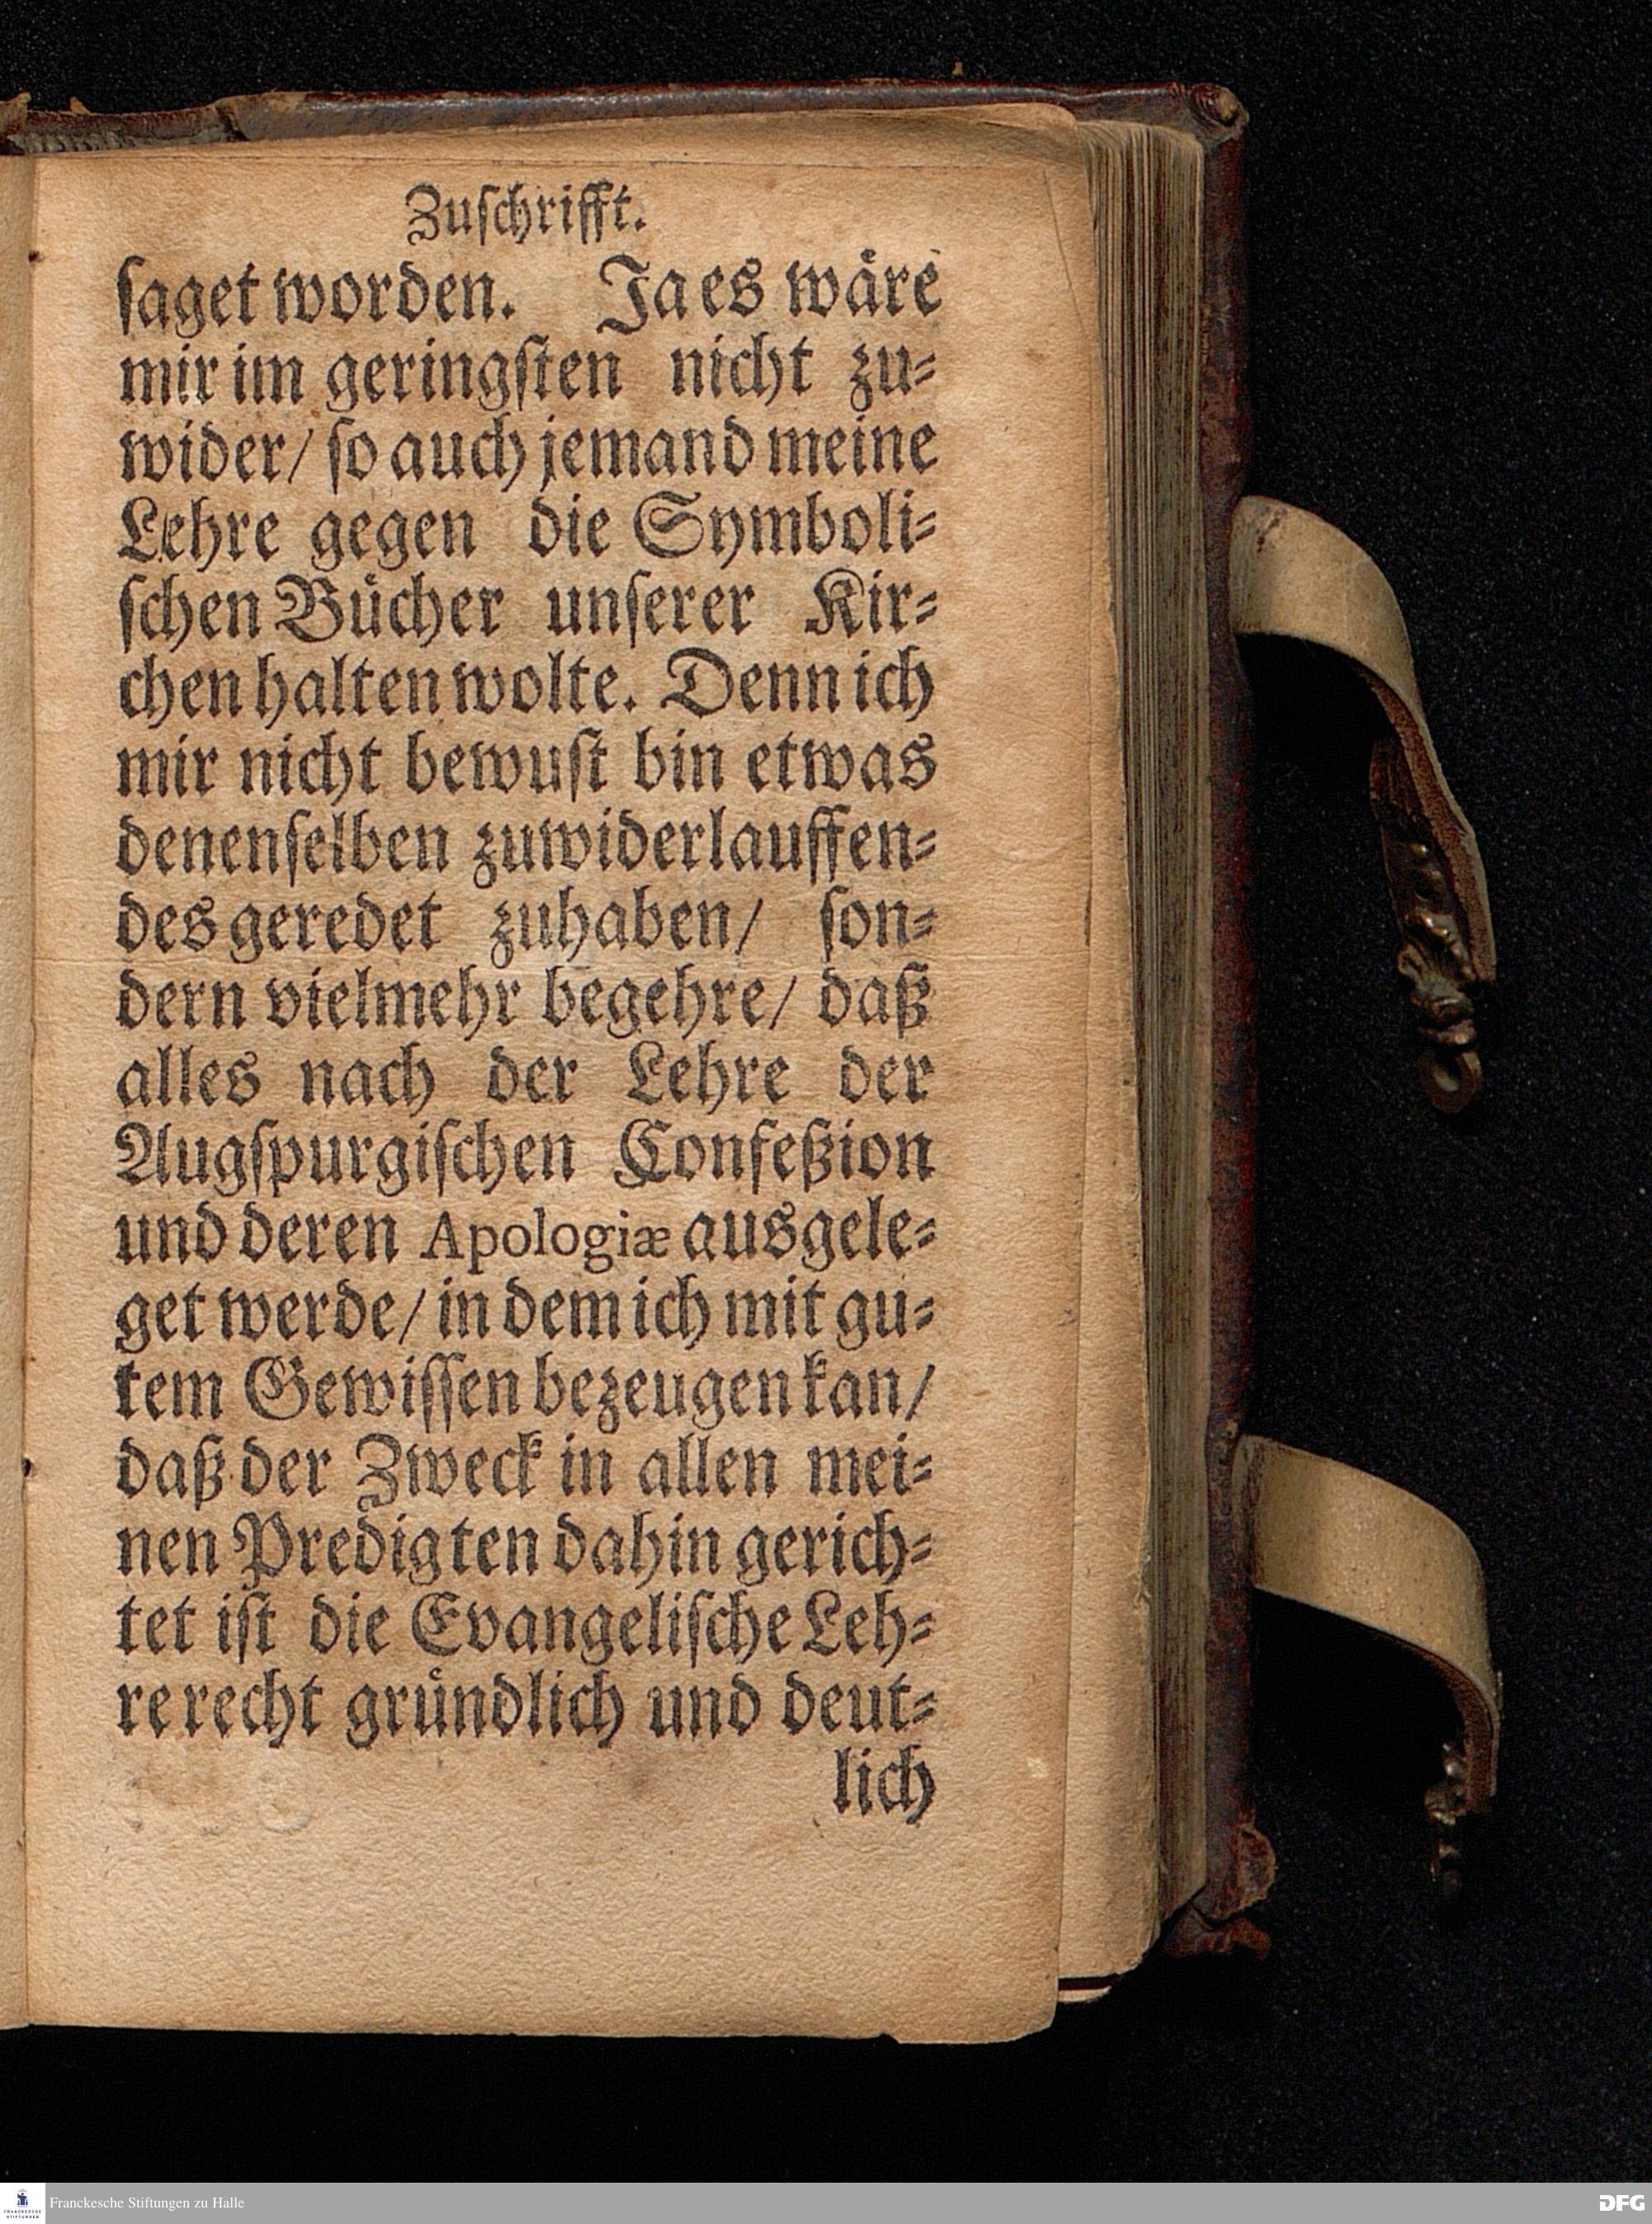 Zuſchrifft.
ſaget worden. Ja es wäre
mir im geringſten nicht zu⸗
wider/ ſo auch jemand meine
Lehre gegen die Symboli⸗
ſchen Bücher unſerer Kir⸗
chen halten wolte. Denn ich
mir nicht bewuſt bin etwas
denenſelben zuwiderlauffen⸗
des geredet zuhaben/ ſon⸗
dern vielmehr begehre/ daß
alles nach der Lehre der
Augſpurgiſchen Confeßion
und deren Apologiæ ausgele⸗
get werde/ in dem ich mit gu⸗
tem Gewiſſen bezeugen kan/
daß der Zweck in allen mei⸗
nen Predigten dahin gerich⸗
tet iſt die Evangeliſche Leh⸗
re recht gründlich und deut⸗
lich
FRANCKESCHE STIFTUNGEN
Franckesche Stiftungen zu Halle
DFG